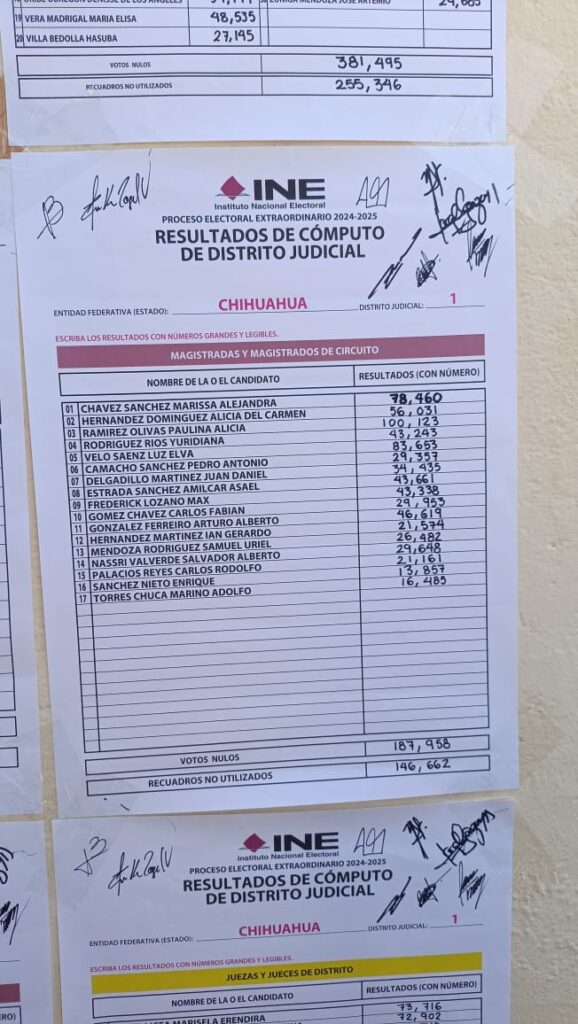 OBREGON DENISSE DE LOS ANGELES MENDOZA JOSE ARTEMIO
19 VERA MADRIGAL MARIA ELISA 48,535
20 VILLA BEDOLLA HASUBA 27,195
VOTOS NULOS 381,495
RECUADROS NO UTILIZADOS 255,346
INE
Instituto Nacional Electoral
PROCESO ELECTORAL EXTRAORDINARIO 2024-2025
RESULTADOS DE CÓMPUTO
DE DISTRITO JUDICIAL
ENTIDAD FEDERATIVA (ESTADO): CHIHUAHUA DISTRITO JUDICIAL: 1
ESCRIBA LOS RESULTADOS CON NÚMEROS GRANDES Y LEGIBLES.
MAGISTRADAS Y MAGISTRADOS DE CIRCUITO
NOMBRE DE LA O EL CANDIDATO RESULTADOS (CON NÚMERO)
01 CHAVEZ SANCHEZ MARISSA ALEJANDRA 78,460
02 HERNANDEZ DOMINGUEZ ALICIA DEL CARMEN 56,031
03 RAMIREZ OLIVAS PAULINA ALICIA 100,123
04 RODRIGUEZ RIOS YURIDIANA 43,243
05 VELO SAENZ LUZ ELVA 83,653
06 CAMACHO SANCHEZ PEDRO ANTONIO 29,357
07 DELGADILLO MARTINEZ JUAN DANIEL 34,435
08 ESTRADA SANCHEZ AMILCAR ASAEL 43,661
09 FREDERICK LOZANO MAX 43,338
10 GOMEZ CHAVEZ CARLOS FABIAN 29,953
11 GONZALEZ FERREIRO ARTURO ALBERTO 46,619
12 HERNANDEZ MARTINEZ IAN GERARDO 21,574
13 MENDOZA RODRIGUEZ SAMUEL URIEL 26,482
14 NASSRI VALVERDE SALVADOR ALBERTO 29,648
15 PALACIOS REYES CARLOS RODOLFO 21,161
16 SANCHEZ NIETO ENRIQUE 13,857
17 TORRES CHUCA MARINO ADOLFO 16,485
VOTOS NULOS 187,958
RECUADROS NO UTILIZADOS 146,662
INE
Instituto Nacional Electoral
PROCESO ELECTORAL EXTRAORDINARIO 2024-2025
RESULTADOS DE CÓMPUTO
DE DISTRITO JUDICIAL
ENTIDAD FEDERATIVA (ESTADO): CHIHUAHUA DISTRITO JUDICIAL: 1
ESCRIBA LOS RESULTADOS CON NÚMEROS GRANDES Y LEGIBLES.
JUEZAS Y JUECES DE DISTRITO
NOMBRE DE LA O EL CANDIDATO RESULTADOS (CON NÚMERO)
MARISELA ERENDIRA 73,716
72,902